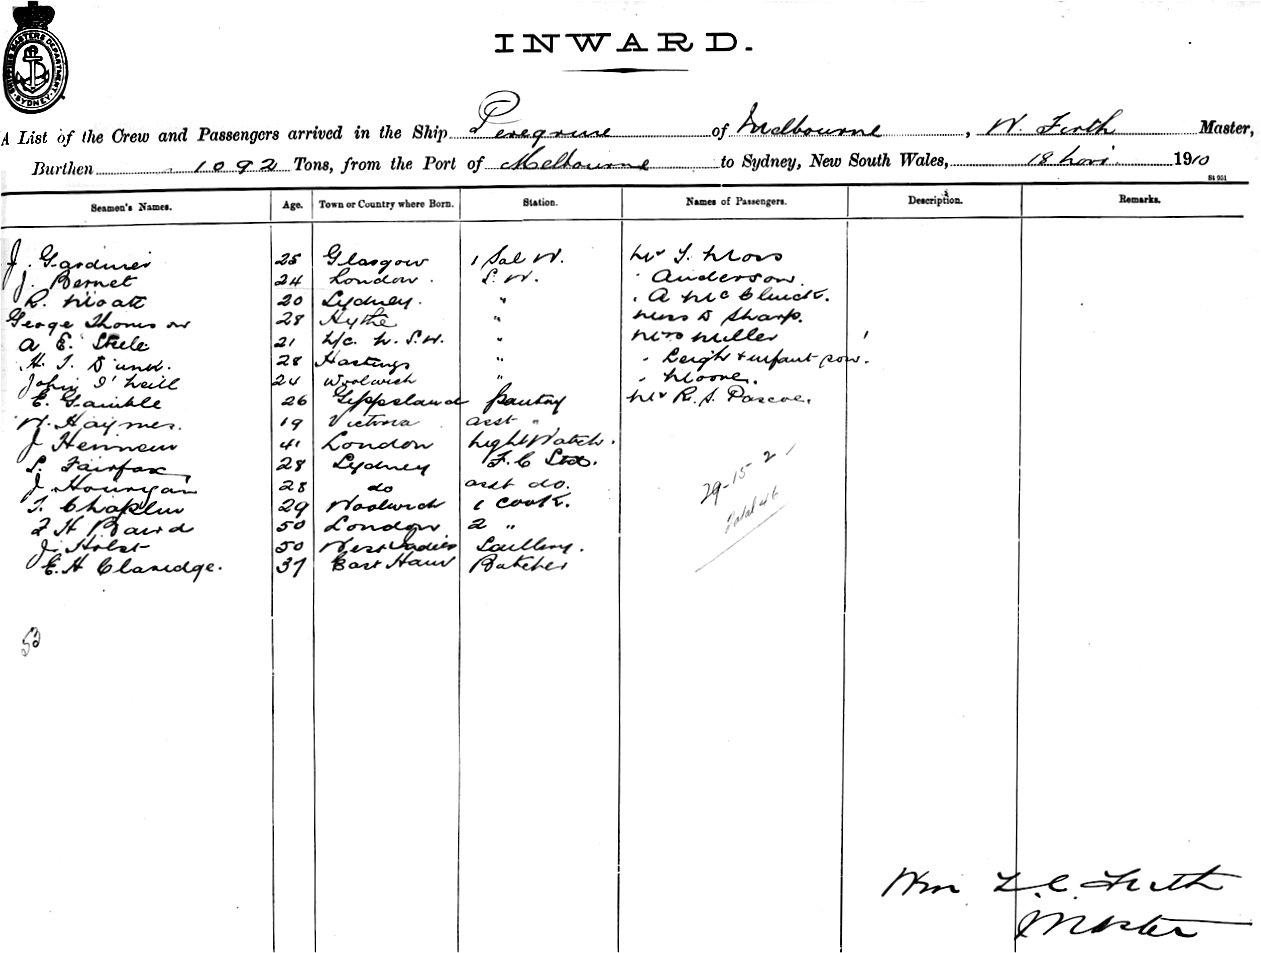 SHIPPING MASTERS DEPARTMENT SYDNEY
INWARD.
A List of the Crew and Passengers arrived in the Ship Peregrine of Melbourne, W. Firth Master,
Burthen 1092 Tons, from the Port of Melbourne to Sydney, New South Wales, 18 Novr 1910
St 951
Seamen's Names. Age. Town or Country where Born. Station. Names of Passengers. Description. Remarks.
J. Gardiner 25 Glasgow 1 Sal W. Mr T. Moss
J. Bernet 24 London. S. W. " Anderson
R. Moatt 20 Sydney. " " A McCluick.
George Thomson 28 Hythe " Miss D Sharp.
A E. Steele 21 N/c. N. S. W. " Mrs Miller
H. T. Dunk. 28 Hastings " " Leigh + infant son.
John O'Neill 24 Woolwich " " Moore.
E. Gamble 26 Gippsland pantry Mr R. S. Pascoe.
W. Haymes. 19 Victoria asst "
J Hennein 41 London Night Watch.
S. Fairfax 28 Sydney F. C Std.
J. Hourigan 28 do asst do.
T. Chaplin 29 Woolwich 1 Cook.
F H Baird 50 London 2 "
J. Holst 50 West Indies Scullery.
E. H Claridge. 37 East Ham Butcher
29-15 2
Total 46
53
Wm F. C. Firth
Master